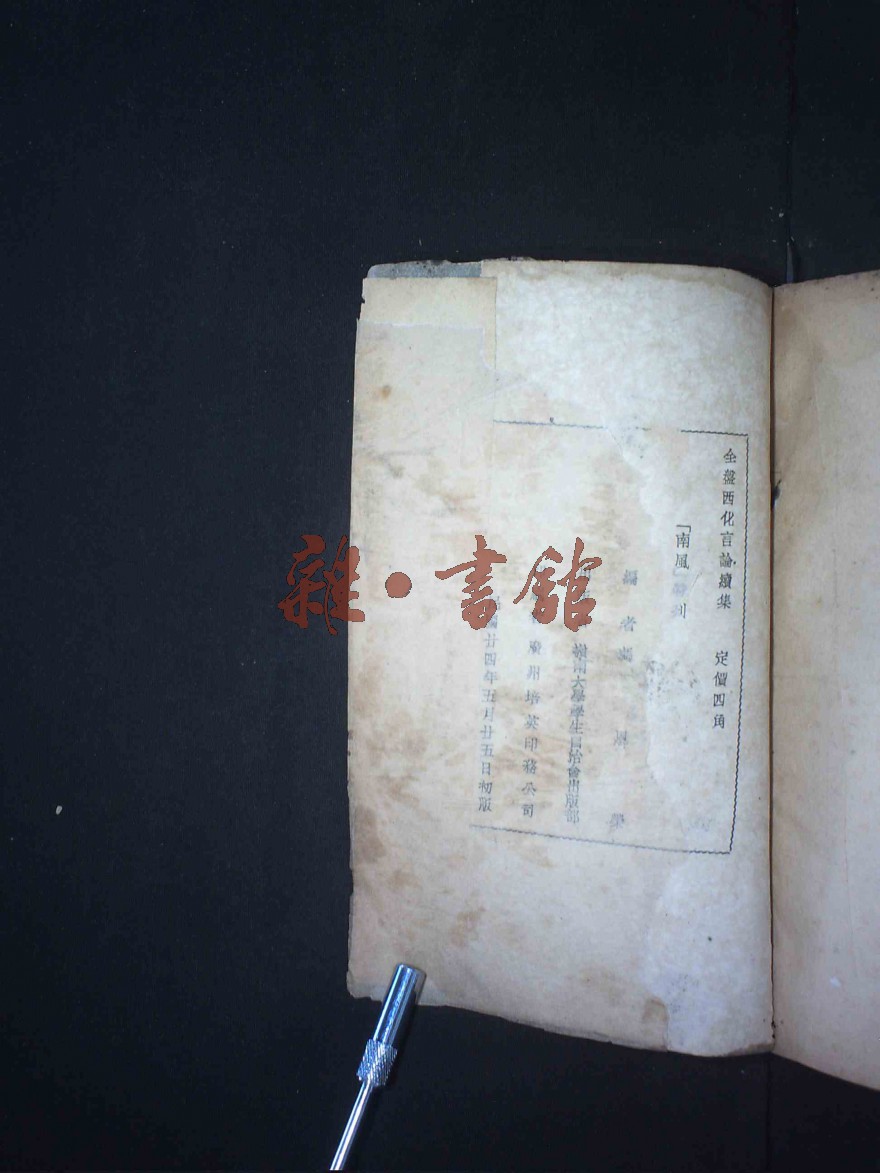 全盤西化言論續集　定價四角
「南風」　刊
編者　馮恩榮
嶺南大學學生自治會出版部
廣州培英印務公司
民國廿四年五月廿五日初版
雜·書館